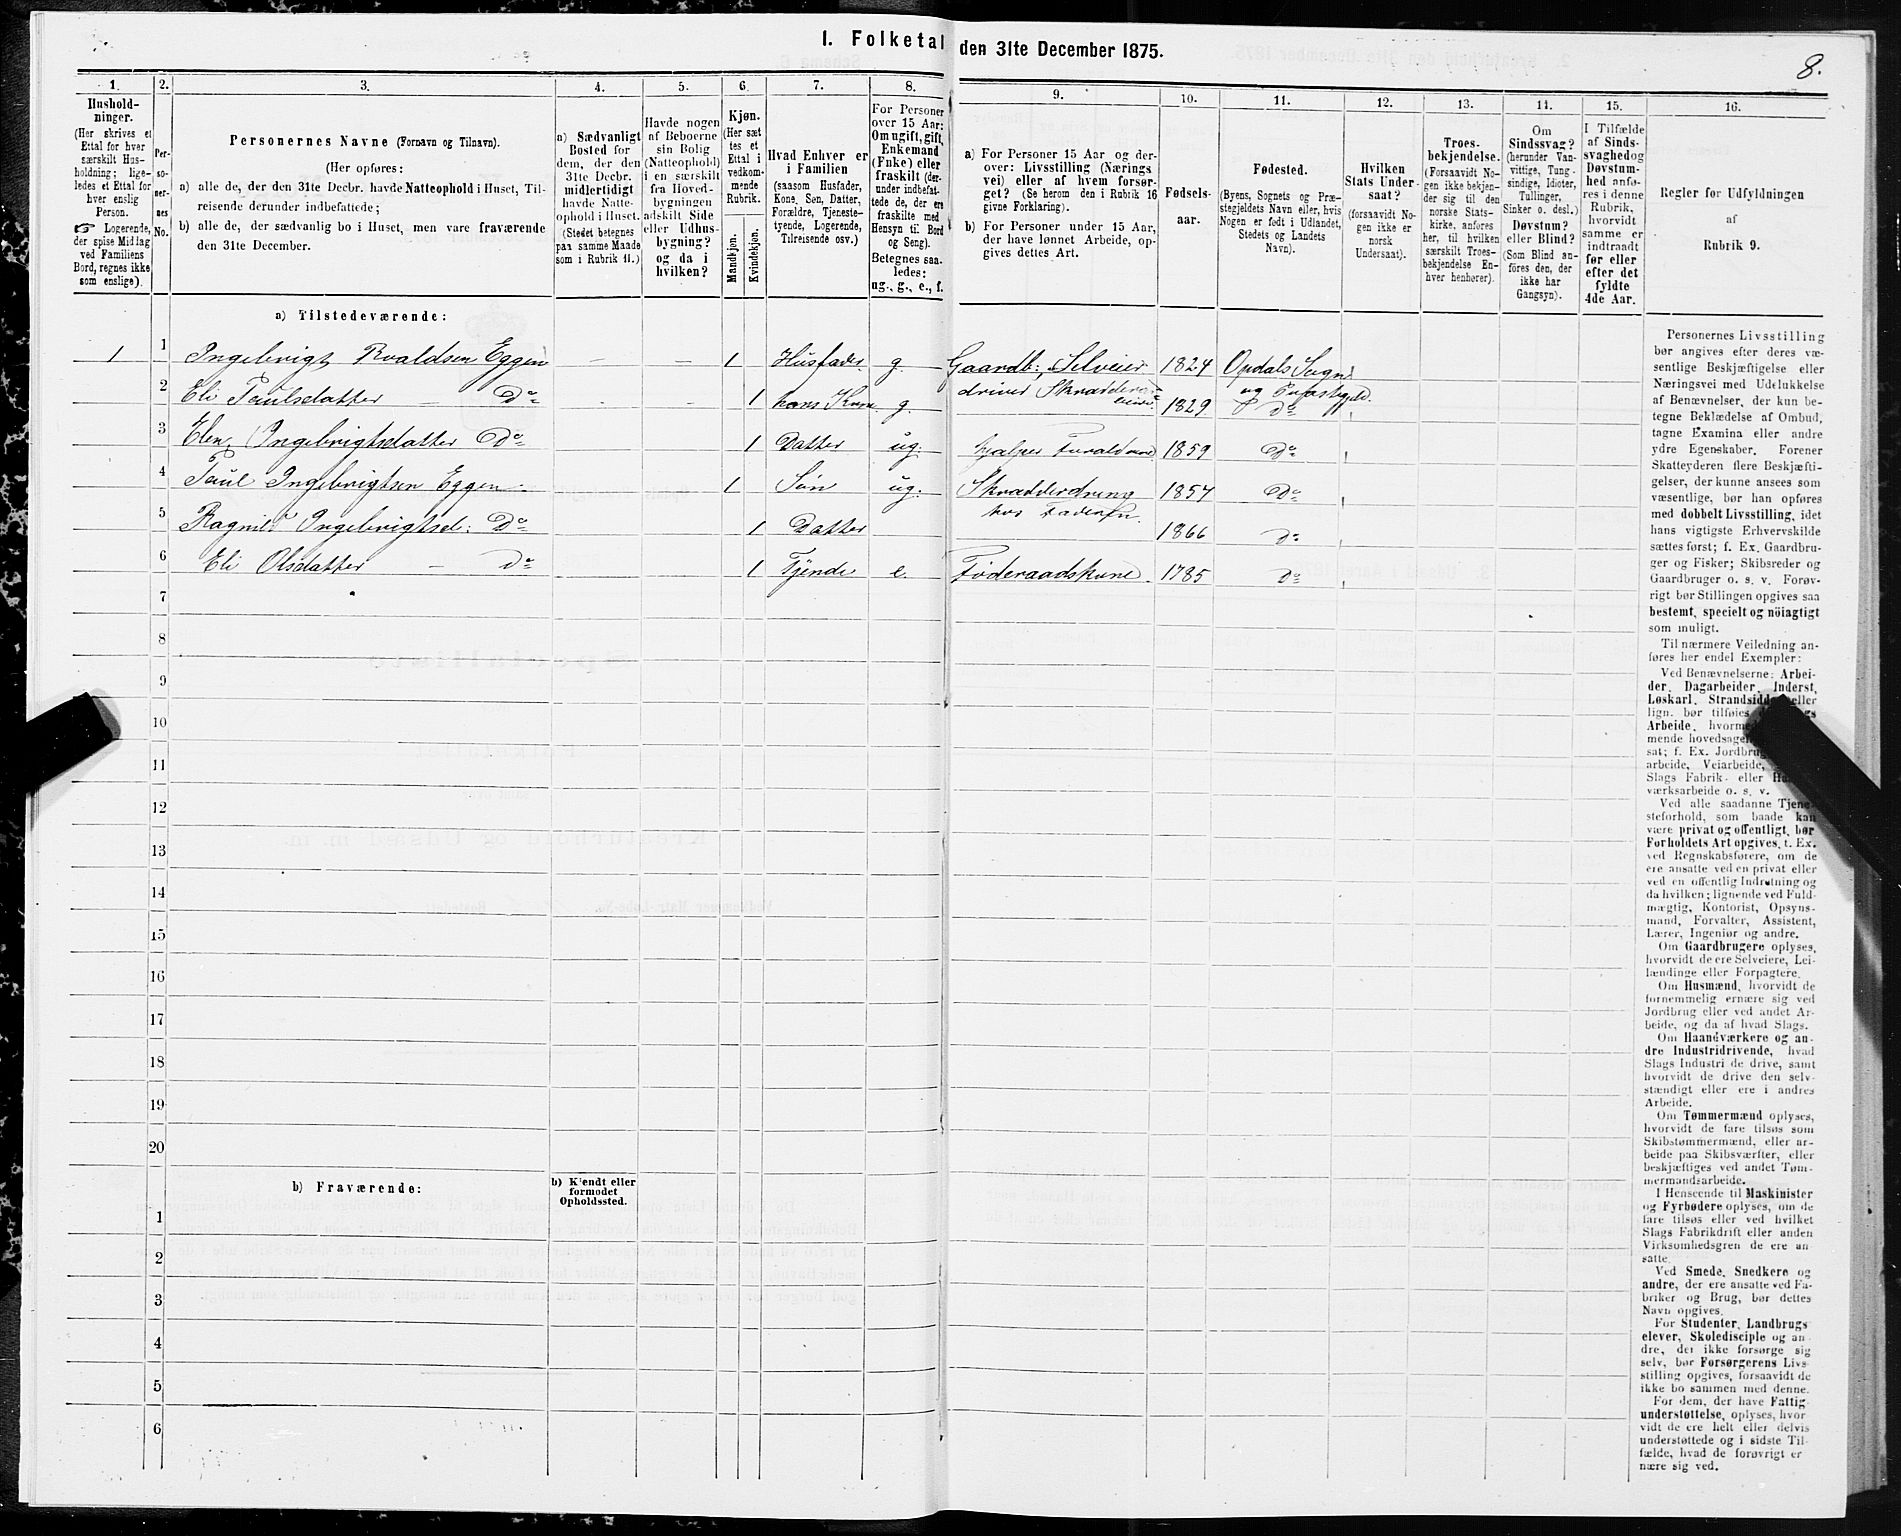 I. Folketal den 31te December 1875.
8.
1. 2. 3. 4. 5. 6. 7. 8. 9. 10. 11. 12. 13. 14. 15. 16.
Hushold-
ninger.
(Her skrives et
Ettal for hver
særskilt Hus-
holdning; lige-
ledes et Ettal for
hver enslig
Person.
☞ Logerende,
der spise Middag
ved Familiens
Bord, regnes ikke
som enslige).
Per-
so-
ner-
nes
No.
Personernes Navne (Fornavn og Tilnavn).
(Her opføres:
a) alle de, der den 31te Decbr. havde Natteophold i Huset, Til-
reisende derunder indbefattede;
b) alle de, der sædvanlig bo i Huset, men vare fraværende
den 31te December.
a) Sædvanligt
Bosted for
dem, der den
31te Decbr.
midlertidigt
havde Natte-
ophold i Huset.
(Stedet betegnes
paa samme Maade
som i Rubrik 11.)
Havde nogen
af Beboerne
sin Bolig
(Natteophold)
i en særskilt
fra Hoved-
bygningen
adskilt Side
eller Udhus-
bygning?
og da i
hvilken?
Kjøn.
(Her sæt
tes et
Ettal i
vedkom-
mende
Rubrik.
Mandkjøn.
Kvindekjøn.
Hvad Enhver er
i Familien
(saasom Husfader,
Kone, Søn, Datter,
Forældre, Tjeneste-
tyende, Logerende,
Tilreisende osv.)
For Personer
over 15 Aar:
Om ugift, gift,
Enkemand
(Enke) eller
fraskilt (der-
under indbefat-
tede de, der ere
fraskilte med
Hensyn til Bord
og Seng).
Betegnes saa-
ledes:
ug., g., e., f.
a) For Personer 15 Aar og der-
over: Livsstilling (Nærings
vei) eller af hvem forsør-
get? (Se herom den i Rubrik 16
givne Forklaring).
b) For Personer under 15 Aar,
der have lønnet Arbeide, op-
gives dettes Art.
Fødsels-
aar.
Fødested.
(Byens, Sognets og Præ-
stegjeldets Navn eller, hvis
Nogen er født i Udlandet,
Stedets og Landets
Navn).
Hvilken
Stats Under-
saat?
(forsaavidt No-
gen ikke er
norsk
Undersaat).
Troes-
bekjendelse.
(Forsaavidt No-
gen ikke bekjen-
der sig til den
norske Stats-
kirke, anføres
her, til hvilken
særskilt Troes-
bekjendelse En-
hver henhører).
Om
Sindssvag?
(herunder Van-
vittige, Tung-
sindige, Idioter,
Tullinger,
Sinker o. desl.)
Døvstum?
eller Blind?
(Som Blind an-
føres den, der
ikke har
Gangsyn).
I Tilfælde
af Sinds-
svaghedog
Døvstum-
hed anfø-
res i denne
Rubrik,
hvorvidt
samme er
indtraadt
før eller
efter det
fyldte
4de Aar.
Regler for Udfyldningen
af
Rubrik 9.
a) Tilstedeværende:
1 1 Ingebrigt Roaldsen Eggen – – 1 Husfader. g. Gaardb: & Selveier 1824 Opdals Sogn
driver Skrædderie og Præstegjeld.
2 Eli Paulsdatter – Do – – 1 hans Kone g. 1829 Do
3 Elen Ingebrigtsdatter Do 1 Datter ug. hjælper Forældrene 1859 Do
4 Paul Ingebrigtsen Eggen 1 Søn ug. Skrædderdreng 1857 Do
hos Faderen.
5 Ragnild Ingebrigtsd: Do 1 Datter 1866 Do
6 Eli Olsdatter – Do 1 Tjende e. Føderaadskone. 1785 Do
7
8
9
10
11
12
13
14
15
16
17
18
19
20
b) Fraværende:
b) Kjendt eller
formodet
Opholdssted.
1
2
3
4
5
6
Personernes Livsstilling
bør angives efter deres væ-
sentlige Beskjæftigelse eller
Næringsvei med Udelukkelse
af Benævnelser, der kun be-
tegne Beklædelse af Ombud,
tagne Examina eller andre
ydre Egenskaber. Forener
Skatteyderen flere Beskjæfti-
gelser, der kunne ansees som
væsentlige, bør han opføres
med dobbelt Livsstilling, idet
hans vigtigste Erhvervskilde
sættes først; f. Ex. Gaardbru-
ger og Fisker; Skibsreder og
Gaardbruger o. s. v. Forøv-
rigt bør Stillingen opgives saa
bestemt, specielt og nöiagtigt
som muligt.
Til nærmere Veiledning an-
føres her endel Exempler:
Ved Benævnelserne: Arbei-
der, Dagarbeider, Inderst,
Løskarl, Strandsidder eller
lign. bør tilføies
Arbeide, hvormed
mende hovedsagelig
sat; f. Ex. Jordbrugs
arbeide, Veiarbeide,
Slags Fabrik- eller
værksarbeide o. s. v.
Ved alle saadanne Tjene-
steforhold, som baade kan
være privat og offentligt, bør
Forholdets Art opgives, t. Ex.
ved Regnskabsførere, om de
ere ansatte ved en privat eller
ved en offentlig Indretning og
da hvilken; lignende ved Fuld-
mægtig, Kontorist, Opsyns-
mand, Forvalter, Assistent,
Lærer, Ingeniør og andre.
Om Gaardbrugere oplyses,
hvorvidt de ere Selveiere, Lei-
lændinge eller Forpagtere.
Om Husmænd, hvorvidt de
fornemmelig ernære sig ved
Jordbrug eller ved andet Ar-
beide, og da af hvad Slags.
Om Haandværkere og an-
dre Industridrivende, hvad
Slags Industri de drive, samt
hvorvidt de drive den selv-
stændigt eller ere i andres
Arbeide.
Om Tømmermænd oplyses,
hvorvidt de fare tilsøs som
Skibstømmermænd, eller ar-
beide paa Skibsværfter, eller
beskjæftiges ved andet Tøm-
mermandsarbeide.
I Henseende til Maskinister
og Fyrbødere oplyses, om de
fare tilsøs eller ved hvilket
Slags Fabrikdrift eller anden
Virksomhedsgren de ere an-
satte.
Ved Smede, Snedkere og
andre, der ere ansatte ved Fa-
briker og Brug, bør dettes
Navn opgives.
For Studenter, Landbrugs
elever, Skoledisciple og an-
dre, der ikke forsørge sig
selv, bør Forsørgerens Livs-
stilling opgives, forsaavidt de
ikke bo sammen med denne.
For dem, der have Fattig
understøttelse, oplyses, hvor
vidt de ere helt eller delvis
understøttede og i sidste Til-
fælde, hvad de forøvrigt er
nære sig ved.